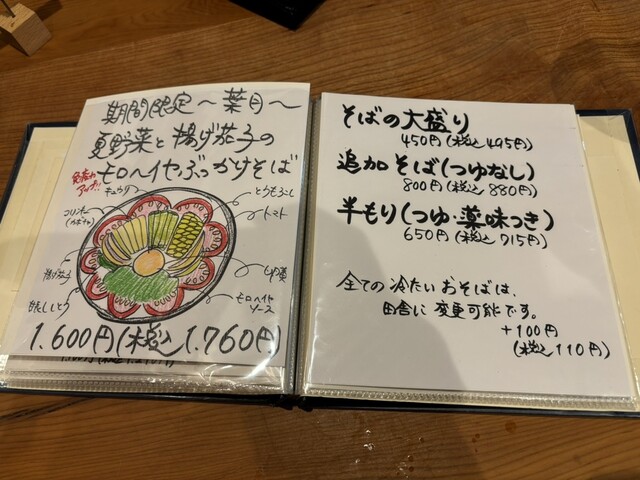 期間限定〜葉月〜
夏野菜と揚げ茄子の
モロヘイヤぶっかけそば
免疫力
アップ!!
キュウリ
とうもろこし
コリンキー
(カボチャ)
トマト
揚げ茄子
卵黄
甘長しとう
モロヘイヤ
ソース
1.600円(税込1.760円)
そばの大盛り
450円(税込495円)
追加そば(つゆなし)
800円(税込880円)
半もり(つゆ・薬味つき)
650円(税込715円)
全ての冷たいおそばは、
田舎に変更可能です。
+100円
(税込110円)